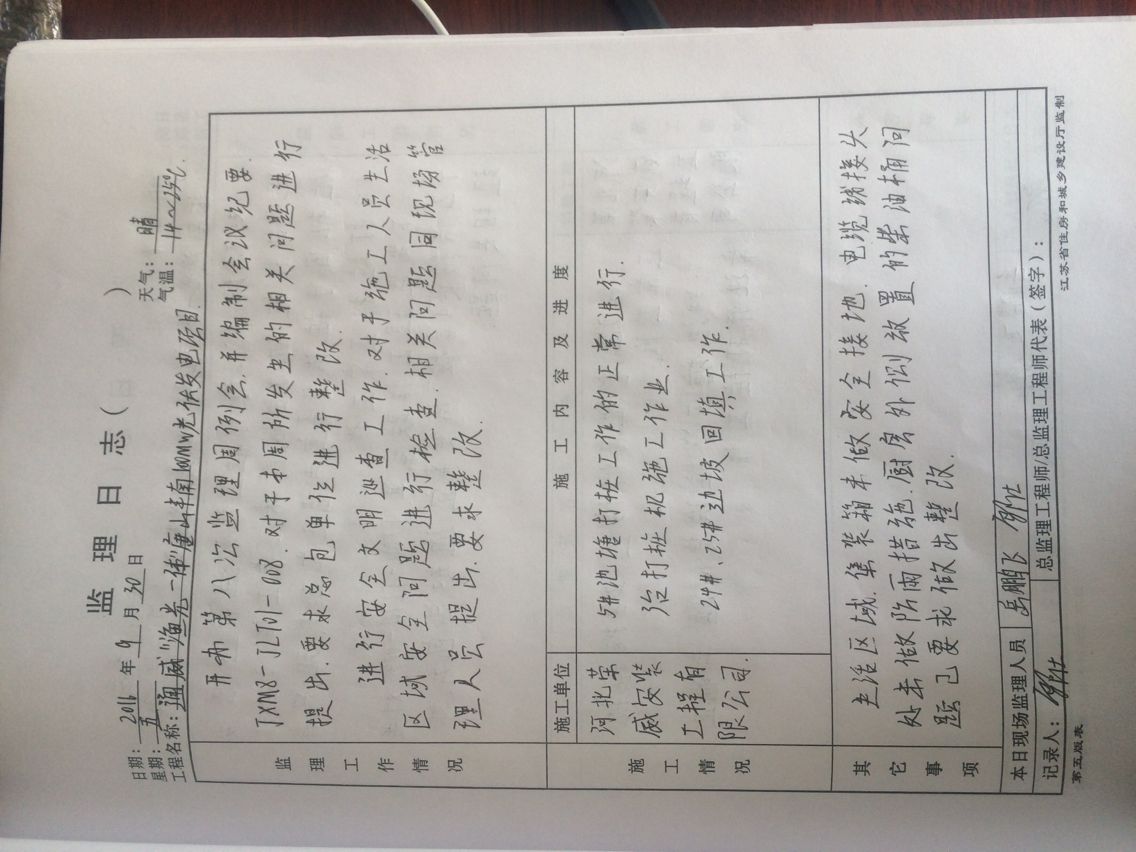 监理日志（ ）
日期：2016年9月30日 天气：晴
星期：五 气温：14~25℃
工程名称：通威"渔光一体"唐山丰南100MW光伏发电项目.
监理工作情况
开布第八次监理周例会,并编制会议纪要.
TXM8-JLT01-008.对于本周所发生的相关问题进行
提出.要求总包单位进行整改.
进行安全文明巡查工作.对于施工人员生活
区域安全问题进行检查.相关问题同现场管
理人员提出.要求整改.
施工情况
施工单位 施工内容及进度
河北荣
威安装
工程有
限公司.
5#池塘打桩工作的正常进行.
台打桩机施工作业.
24#、25#边坡回填工作.
其它事项
生活区域.集装箱未做安全接地.电缆线接头
处未做防雨措施.厨房外侧放置的柴油桶问
题已要求做出整改.
本日现场监理人员 岳鹏飞
记录人： 总监理工程师/总监理工程师代表（签字）：
第五版表 江苏省住房和城乡建设厅监制